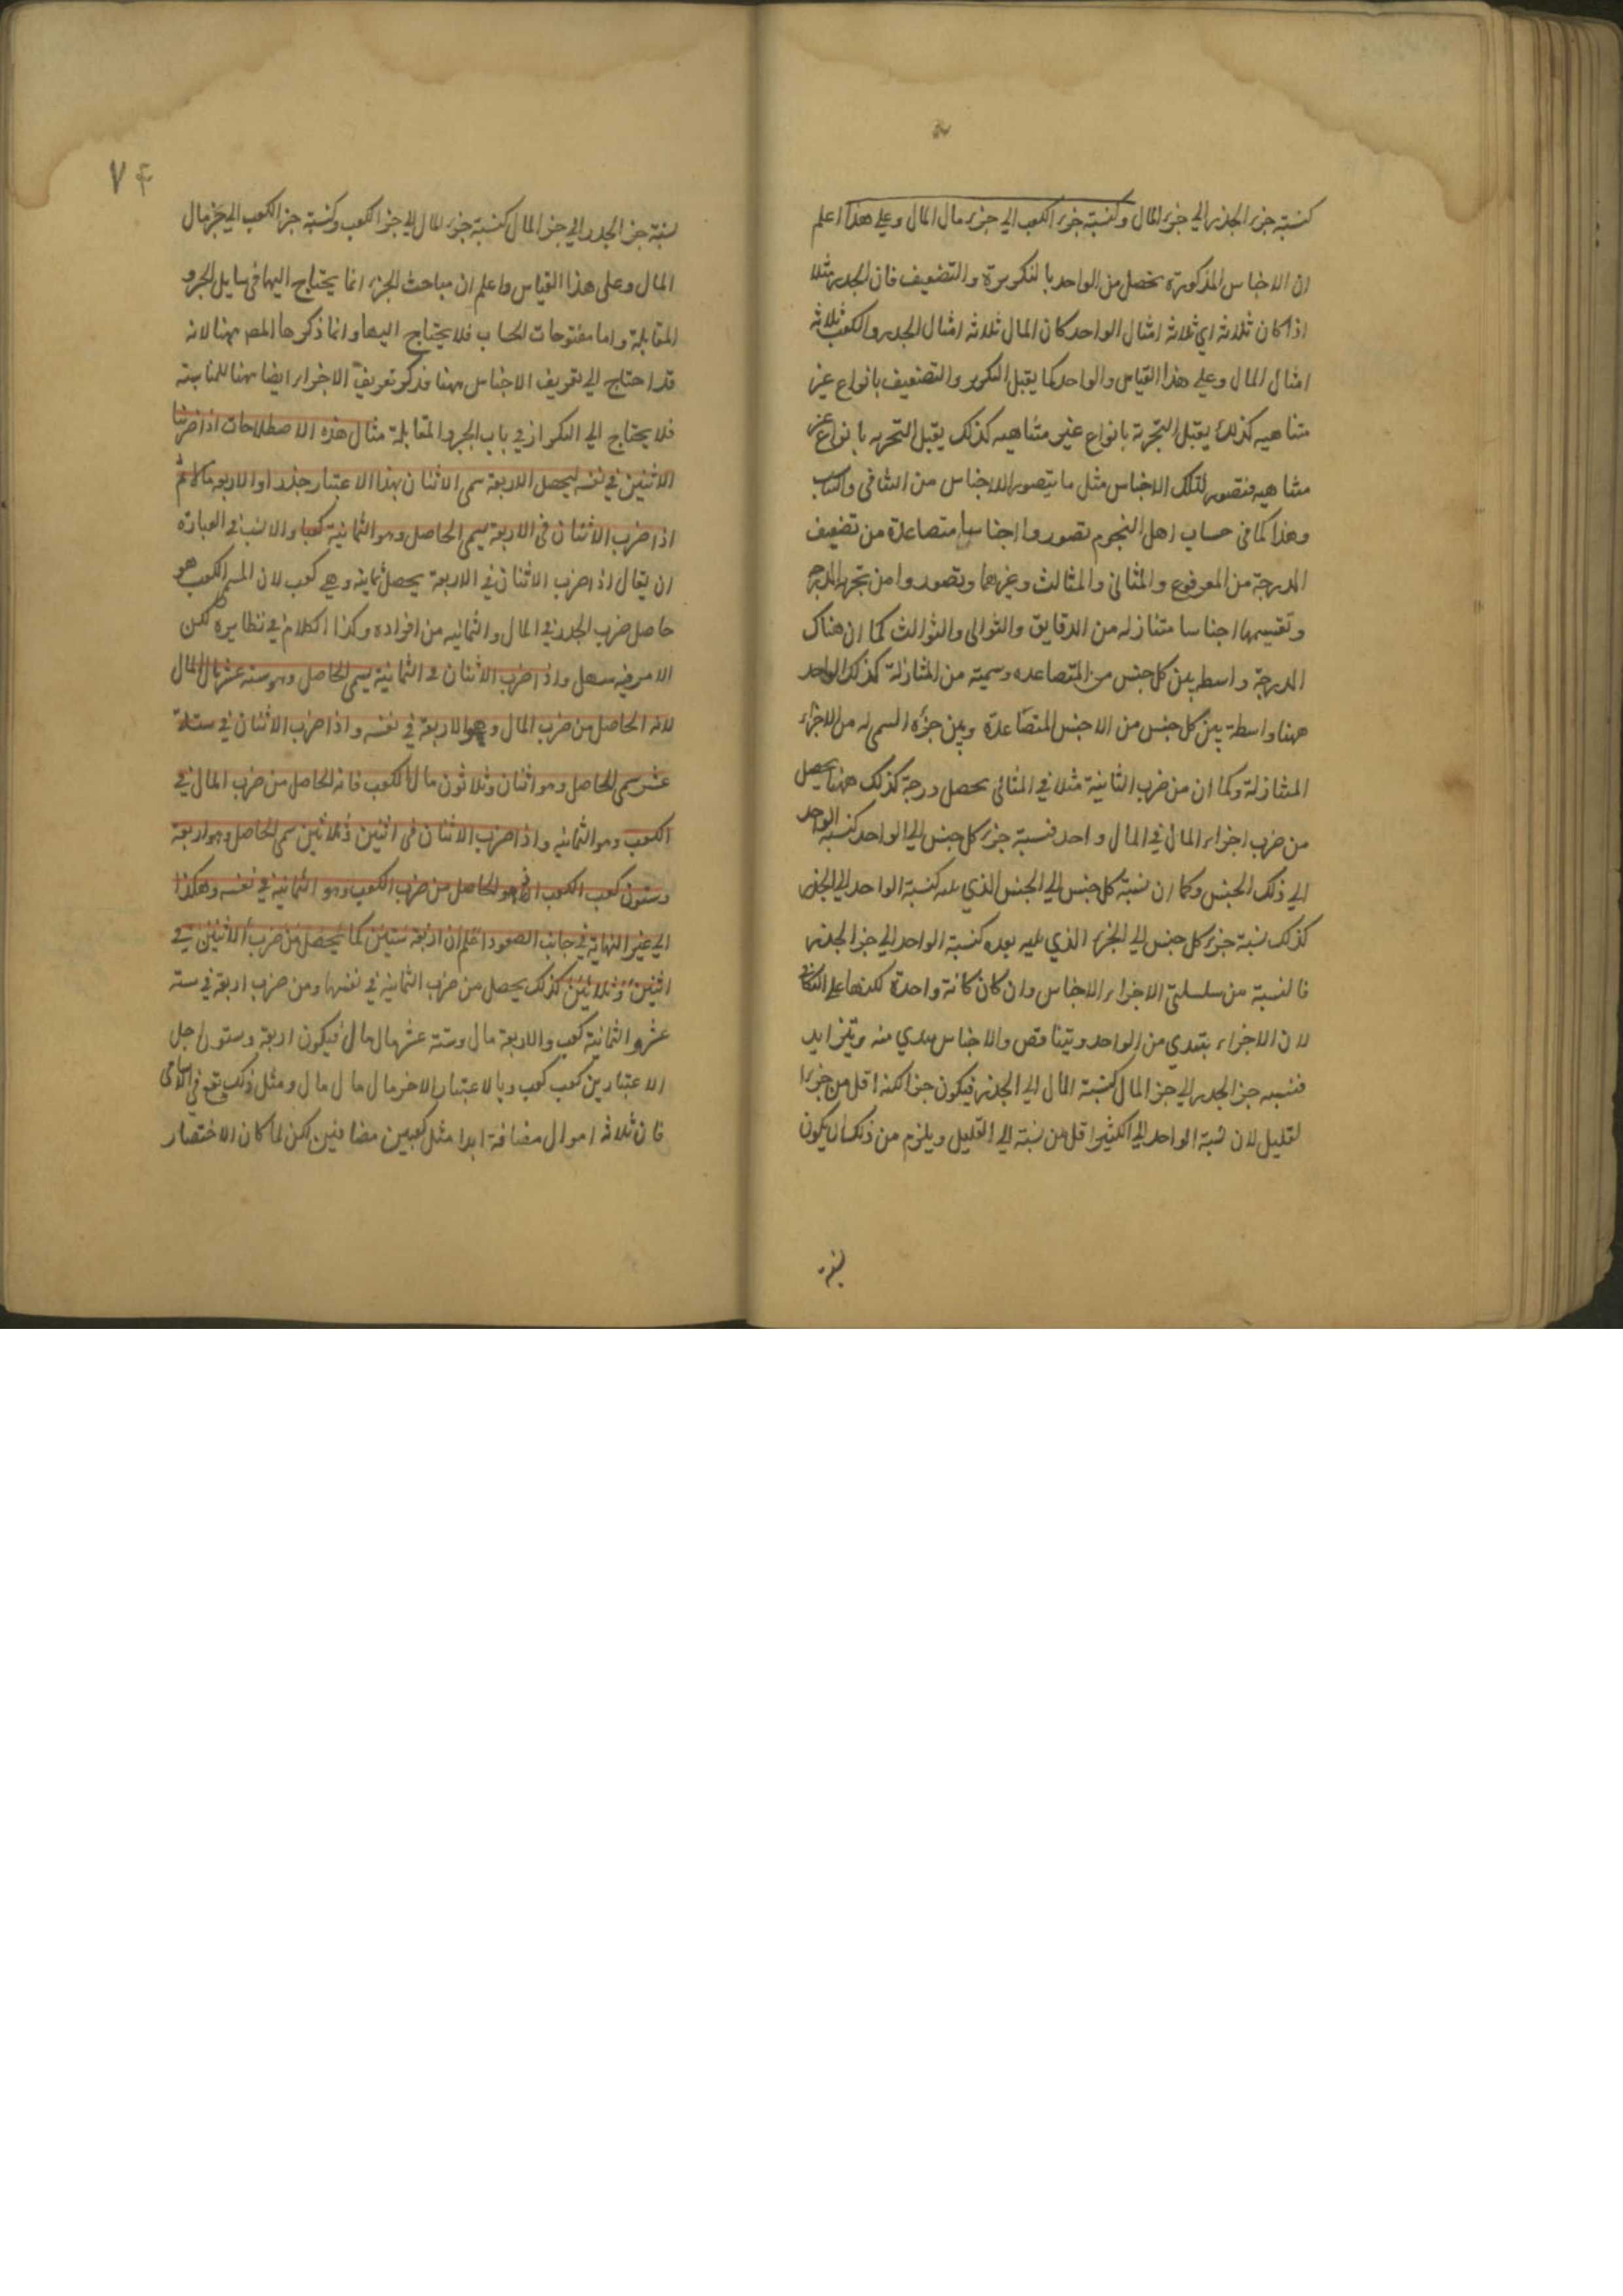 كنسبة جزء الجذر الي جزء المال وكنسبة جزء الكعب الي جزء مال المال وعلي هذا اعلم
ان الاجناس المذكورة تحصل من الواحد با لتكريرة والتضعيف فان الجدر مثلا
اذا كان ثلاثه اي ثلاثه امثال الواحد كان المال ثلاثه امثال الجدر والكعب ثلاثه
امثال المال وعلي هذا القياس والواحد كما يقبل التكرير والتضعيف بانواع غير
متناهيه كذلك يقبل التجزئة بانواع غير متناهيه كذلك يقبل التجزيه با نواع غير
متناهيه فتصور لتلك الاجناس مثل ما يتصور للاجناس من
وهذا كما في حساب اهل النجوم تصوروا اجناسا متصاعدة من تضعيف
الدرجة من المرفوع والمثاني والمثالث وغيرها وتصوروا من تجزية الدرج
وتقسيمها اجناسا متنازله من الدقايق والثواني والثوالث كما ان هناك
الدرجة واسطه بين كل جنس من المتصاعده وسميته من المتنازلة كذلك الواحد
ههنا واسطة بين كل جنس من الاجنس المتصاعدة وبين جزؤه السمي له من الاجزاء
المتنازلة وكما ان من ضرب الثانية مثلا في المثاني تحصل درجة كذلك ههنا يحصل
من ضرب اجزاء المال في المال واحد فنسبة جزء كل جنس الي الواحد كنسبة الواحد
الي ذلك الجنس وكما ان نسبة كل جنس الي الجنس الذي يليه كنسبة الواحد الي الجذر
كذلك نسبة جزء كل جنس الي الجزء الذي يليه بعده كنسبة الواحد الي جز الجذر
فالنسبة من سلسلتي الاجزاء الاجناس وان كان كانة واحدة لكنها علي التكافي
لان الاجزاء يبتدي من الواحد ويتناقص والاجناس يبتدي منه ويتزايد
فنسبه جز الجدر الي جز المال كنسبة المال الي الجذر فيكون جز الكنه اقل من جزء
لقليل لان نسبة الواحد الي الكثير اقل من نسبة الي القليل ويلزم من ذلك ان يكون
٧٤
نسبة جز الجدر الي جز المال كنسبة جزء المال الي جز الكعب وكنسبة جز الكعب الي جز مال
المال وعلى هذا القياس واعلم ان مباحث الجزء انما يحتاج اليها في مسايل الجبر و
المقابلة واما مفتوحات الحساب فلا يحتاج اليها وانما ذكرها المص ههنا لانه
قد احتاج الي تعريف الاجناس ههنا فذكر تعريف الاجزاء ايضا ههنا للمناسبة
فلا يحتاج الي التكرار في باب الجبر والمقابلة مثال هذه الاصطلاحات اذا ضربنا
الاثنين في نفسه ليحصل الاربعة سمي الاثنان بهذا الاعتبار جذرا والاربعه مالا ثم
اذا ضرب الاثنان في الاربعة يسمي الحاصل وهو الثمانية كعبا والانسب في العبارة
ان يقال اذا ضرب الاثنان في الاربعة يحصل ثمانيه وهي كعب لان المسمي الكعب هو
حاصل ضرب الجدر في المال والثمانيه من افراده وكذا الكلام في نظايره لكن
الامر فيه سهل واذا ضرب الاثنان في الثمانية يسمي الحاصل وهو سته عشر مال المال
لانه الحاصل من ضرب المال وهو الاربعة في نفسه واذا ضرب الاثنان في ستة
عشر سمي الحاصل وهو اثنان وثلاثون مال الكعب فانه الحاصل من ضرب المال في
الكعب وهو الثمانيه واذا ضرب الاثنان في اثنين وثلاثين سمي الحاصل وهو اربعة
وستون كعب الكعب اذ هو الحاصل من ضرب الكعب وهو الثمانية في نفسه وهكذا
الي غير النهاية في جانب الصعود اعلم ان اربعة ستين كما يحصل من ضرب الاثنين في
اثنين وثلاثين كذلك يحصل من ضرب الثمانية في نفسها ومن ضرب اربعة في سته
عشر والثمانية كعب والاربعة مال وستة عشر مال مال فيكون اربعة وستون اجل
الاعتبارين كعب كعب وبالاعتبار الاخر مال مال مال ومثل ذلك يقع في الاسامي
فان ثلاثه اموال مضافة ابدا مثل كعبين مضافين لكن لما كان الاختصار